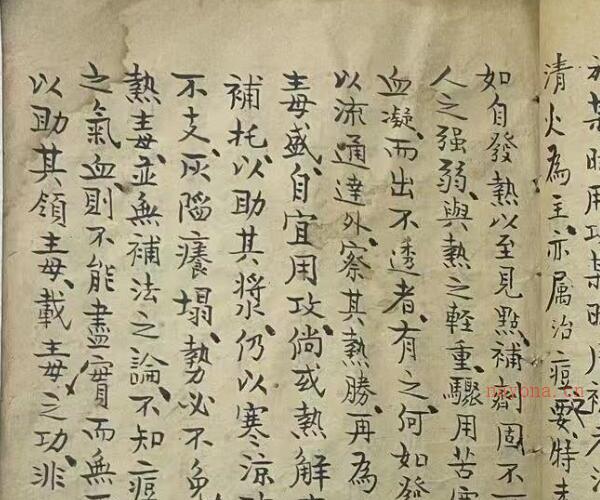 某時用攻某時用補之法
清火為主、亦屬治痘要、特未
如自發熱以至見點、補劑固不
人之强弱、與熱之輕重、驟用苦
血凝、而出不透者、有之、何如發
以流通達外、察其熱勝、再為
毒盛、自宜用攻、倘或熱解
補托、以助其將、仍以寒涼
不支、灰陷癢塌、勢必不免
熱毒、並無補法之論、不知痘
之氣血、則不能盡實而無
以助其領毒、載毒之功、非